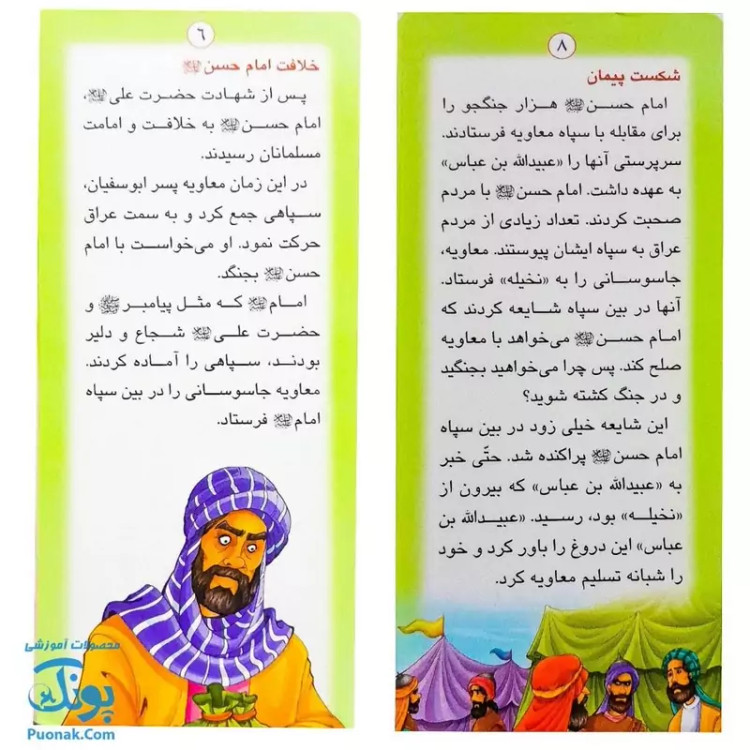 ۸
شکست پیمان
امام حسن ﷷ هزار جنگجو را
برای مقابله با سپاه معاویه فرستادند.
سرپرستی آنها را «عبیدالله بن عباس»
به عهده داشت. امام حسن با مردم
صحبت کردند. تعداد زیادی از مردم
عراق به سپاه ایشان پیوستند. معاویه،
جاسوسانی را به «نخیله» فرستاد.
آنها در بین سپاه شایعه کردند که
امام حسن می‌خواهد با معاویه
صلح کند. پس چرا می‌خواهید بجنگید
و در جنگ کشته شوید؟
این شایعه خیلی زود در بین سپاه
امام حسن پراکنده شد. حتّی خبر
به «عبیدالله بن عباس» که بیرون از
«نخیله» بود، رسید. «عبیدالله بن
عباس» این دروغ را باور کرد و خود
را شبانه تسلیم معاویه کرد.
۶
خلافت امام حسن
پس از شهادت حضرت علی،
امام حسن به خلافت و امامت
مسلمانان رسیدند.
در این زمان معاویه پسر ابوسفیان،
سپاهی جمع کرد و به سمت عراق
حرکت نمود. او می‌خواست با امام
حسن بجنگد.
امام که مثل پیامبر و
حضرت علی شجاع و دلیر
بودند، سپاهی را آماده کردند.
معاویه جاسوسانی را در بین سپاه
امام فرستاد.
محصولات آموزشی
پونک
Puonak.Com